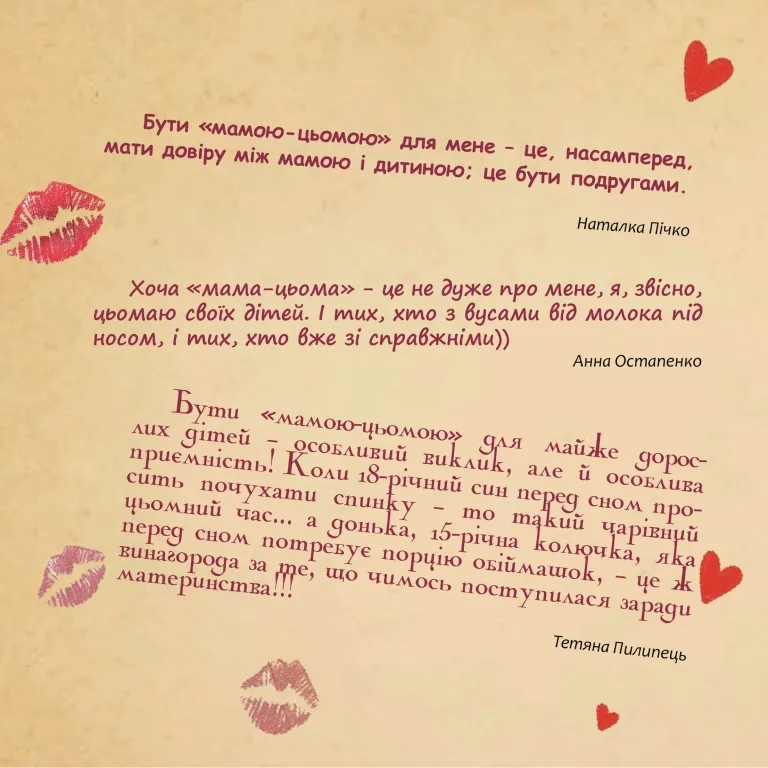 Бути «мамою-цьомою» для мене – це, насамперед,
мати довіру між мамою і дитиною; це бути подругами.
Наталка Пічко
Хоча «мама-цьома» – це не дуже про мене, я, звісно,
цьомаю своїх дітей. І тих, хто з вусами від молока під
носом, і тих, хто вже зі справжніми))
Анна Остапенко
Бути «мамою-цьомою» для майже дорос-
лих дітей – особливий виклик, але й особлива
приємність! Коли 18-річний син перед сном про-
сить почухати спинку – то такий чарівний
цьомний час... а донька, 15-річна колючка, яка
перед сном потребує порцію обіймашок, – це ж
винагорода за те, що чимось поступилася заради
материнства!!!
Тетяна Пилипець